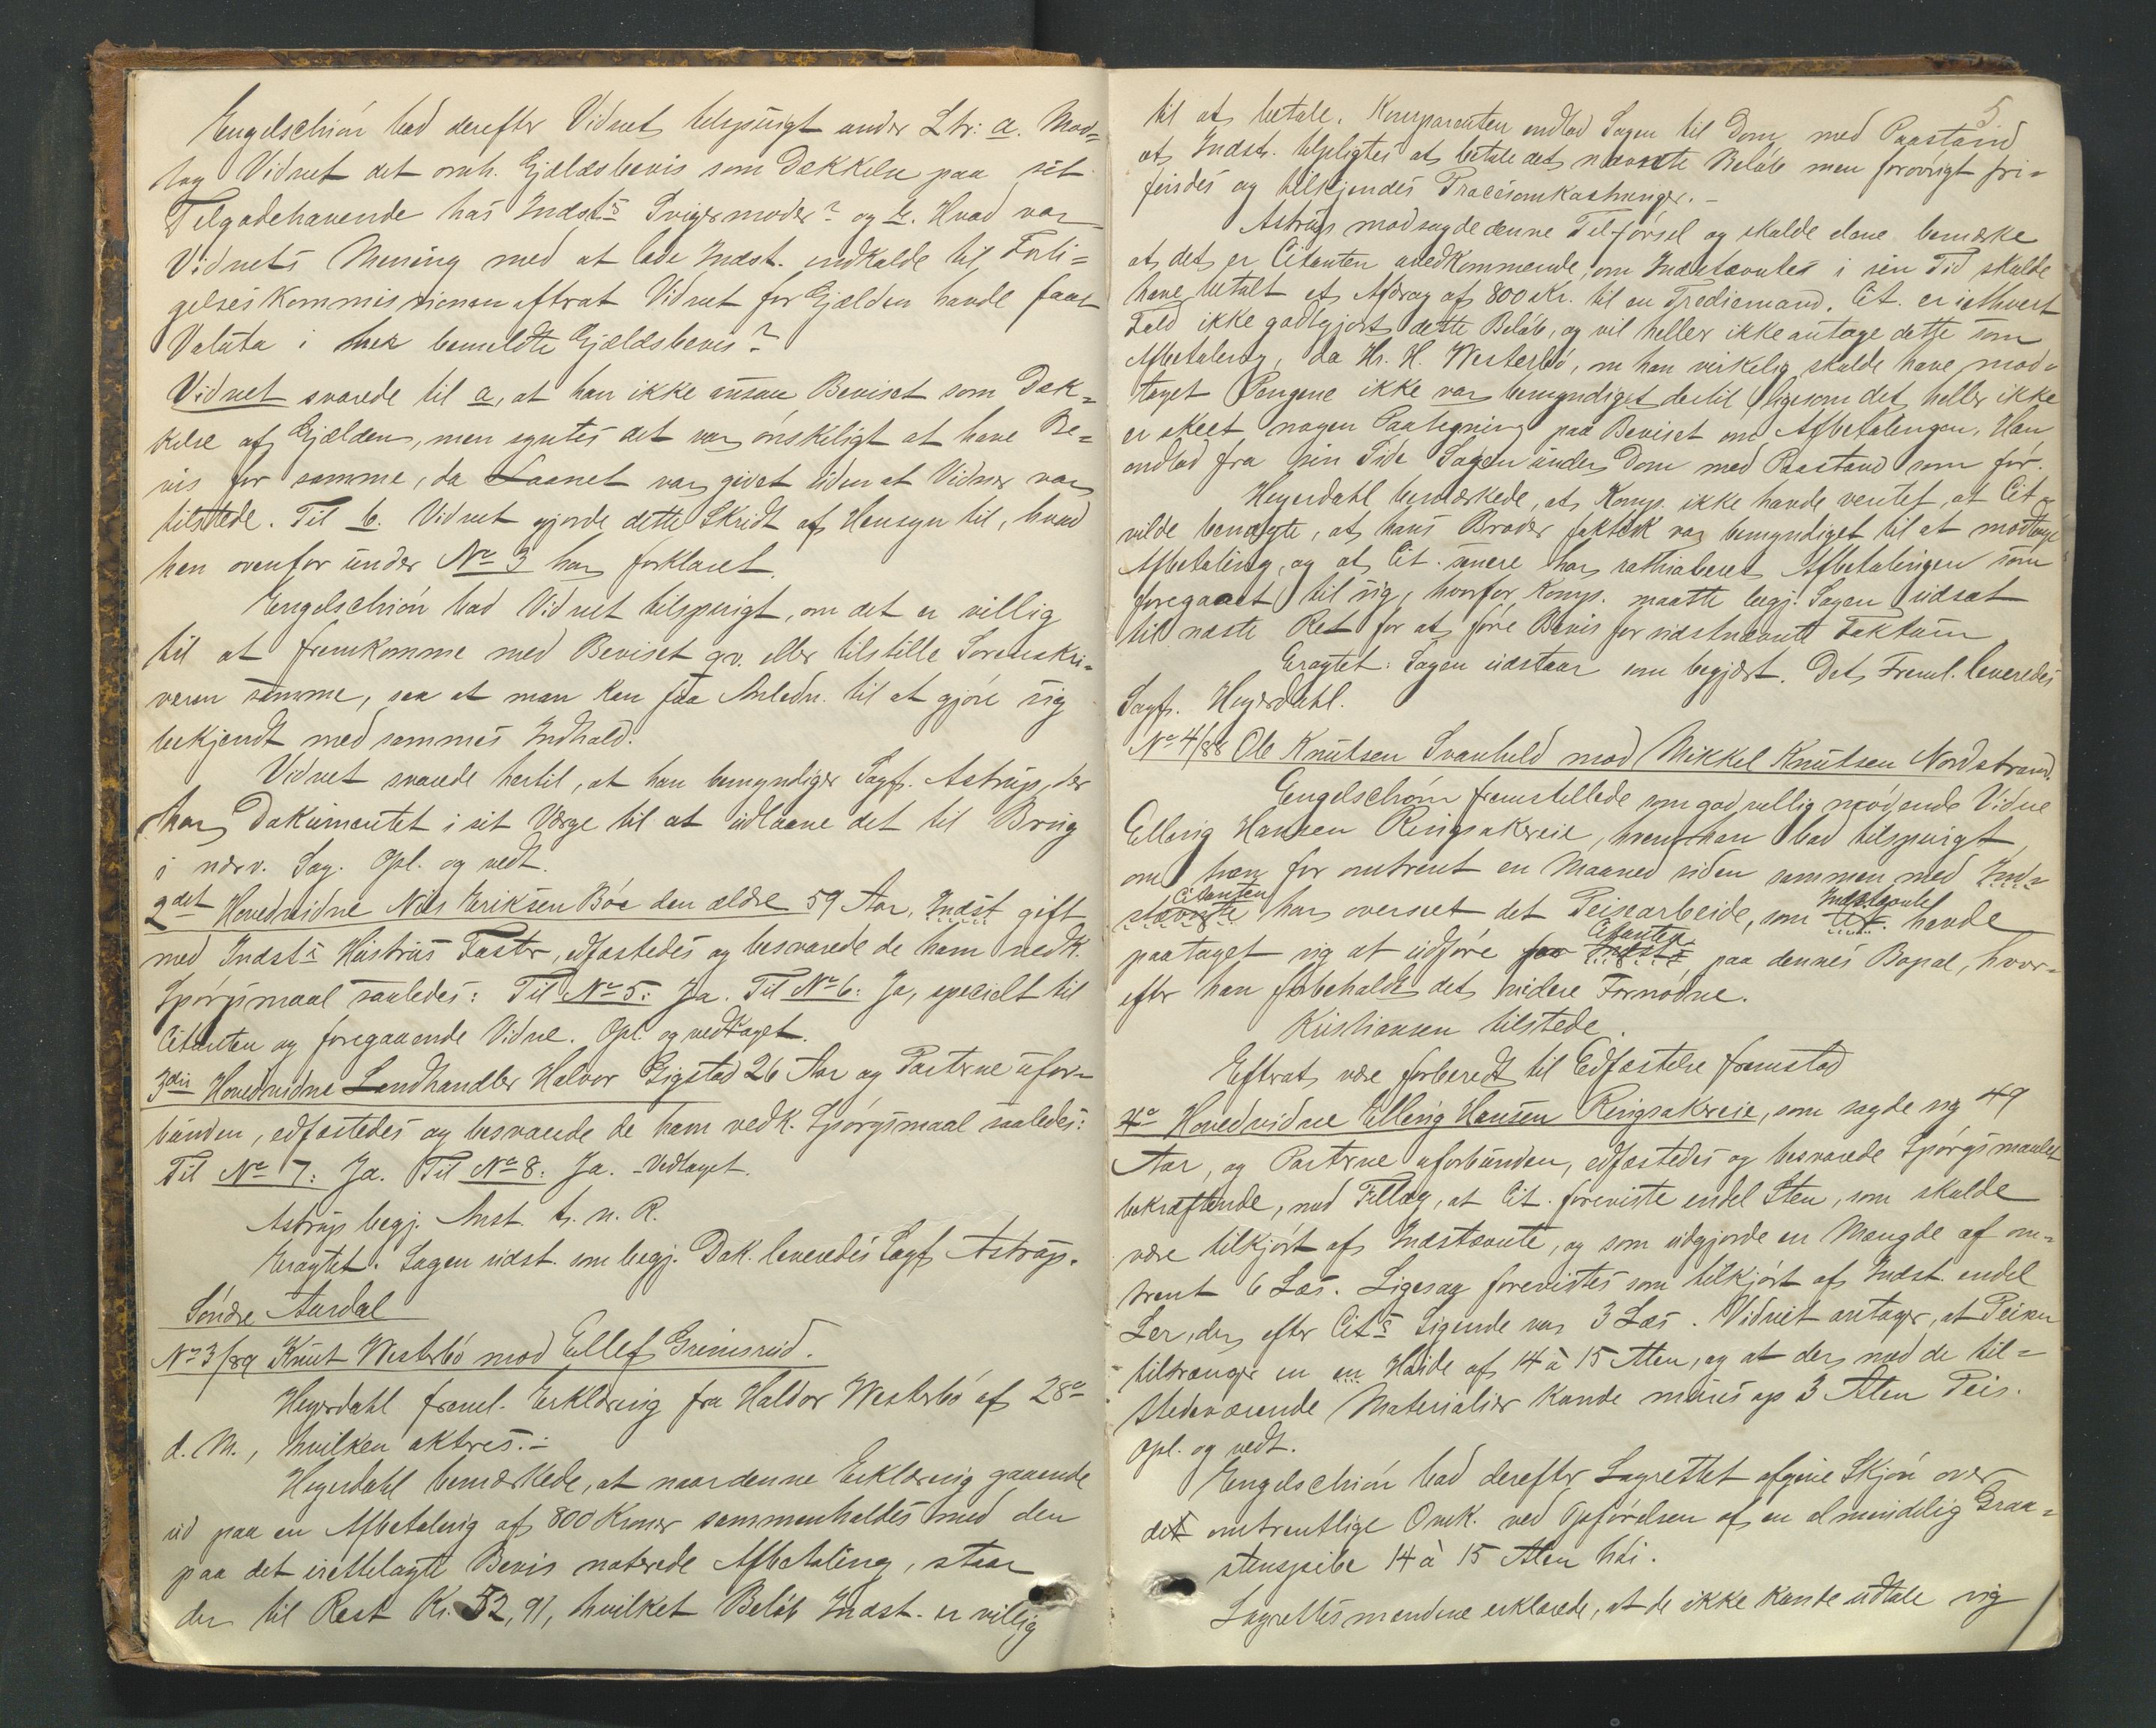 Engelschiön bad derefter Vidnet tilspurgt under Ltr: a. Mod=
tog Vidnet det omh. Gjældsbevis som Dækkelse paa sit
Tilgodehavende hos Indsts Svigermoder? og b. Hvad var
Vidnets Mening med at lade Indst. indkalde til Forli=
gelseskommissionen aftrat Vidnet for Gjælden havde faaet
Valuta i her bemeldte Gjældsbevis?
Vidnet svarede til a, at han ikke ansaa Beviset som Dæk=
kelse af Gjælden, men syntes det var ønskeligt at have Be=
vis for samme, da Laanet var givet uden at Vidner var
tilstede. Til b. Vidnet gjorde dette Skridt af Hensyn til, hvad
han ovenfor under No 3 har forklaret.
Engelschiön bad Vidnet tilspurgt, om det er villig
til at fremkomme med Beviset qv. eller tilstille Sorenskri=
veren samme, saa at man kan faa Anledn. til at gjøre sig
bekjendt med sammes Indhold.
Vidnet svarede hertil, at han bemyndiger Sagf. Astrup, der
har Dokumentet i sit Værge til at udlaane det til Brug
i nærv. Sag. Opl. og vedt.
2det Hovedvidne Nils Eriksen Bøe den ældre 59 Aar, Indst gift
med Indsts Hustrus Faster, edfæstedes og besvarede de ham vedk.
Spørgsmaal saaledes: Til No 5: Ja. Til No 6: Ja, specielt til
Citanten og foregaaende Vidne. Opl. og vedtaget.
3die Hovedvidne Landhandler Halvor Gigstad 26 Aar og Parterne ufor=
bunden, edfæstedes og besvarede de ham vedk. Spørgsmaal saaledes:
Til No 7: Ja. Til No 8: Ja. Vedtaget.
Astrup begj. Anst. t. n. R.
Eragtet: Sagen udst. som begj. Dok. leveredes Sagf Astrup.
Søndre Aurdal
No 3/89 Knut Westerbø mod Ellef Grimsrud.
Heyerdahl freml. Erklæring fra Haldor Westerbø af 28de
d. M., hvilken aktres.-
Heyerdahl bemærkede, at naar denne Erklæring gaaende
ud paa en Afbetaling af 800 Kroner sammenholdes med den
paa det irettelagte Bevis noterede Afbetaling, staar
der til Rest Kr. 52,91, hvilket Beløb Indst. er villig
5
til at betale. Komparenten indlod Sagen til Dom med Paastand
at Indst. tilpligtes at betale det nævnte Beløb men forøvrigt fri=
findes og tilkjendes Procesomkostninger.-
Astrup modsagde denne Tilførsel og skulde alene bemærke
at det er Citanten uvedkommende, om Indstævnte i sin Tid skulde
have betalt et Afdrag af 800 Kr. til en Trediemand. Cit. er iethvert
Fald ikke godtgjort dette Beløb, og vil heller ikke antage dette som
Afbetaling, da Hr. H. Westerbø, om han virkelig skulde have mod=
taget Pengene ikke var bemyndiget dertil ligesom det heller ikke
er skeet nogen Paategning paa Beviset om Afbetalingen. Han
indlod fra sin Side Sagen under Dom med Paastand som før.
Heyerdahl bemærkede, at Komp. ikke havde ventet, at Cit.
vilde benægte, at hans Broder faktisk var bemyndiget til at modtage
Afbetaling, og at Cit. senere har rathiaberet Afbetalingen som
foregaaet til sig, hvorfor Komp. maatte begj. Sagen udsat
til næste Ret for at føre Bevis for sidstnævnte Faktum
Eragtet: Sagen udstaar som begjært. Det Freml. leveredes
Sagf. Heyerdahl.
No 4/88 Ole Knutsen Svanheld mod Mikkel Knutsen Nordstrand.
Engelschiön fremstillede som godvillig mødende Vidne
Elling Hansen Ringsakereie, hvem han bad tilspurgt
om han for omtrent en Maaned siden sammen med Ind=
stævnte Citanten har overseet det Peisearbeide, som Cit. Indstævnte havde
paataget sig at udføre for Indsts Citanten paa dennes Bopæl, hvor=
efter han forbeholdt det videre Fornødne.
Kristiansen tilstede.
Efterat være forberedt til Edfæstelse fremstod
4de Hovedvidne Elling Hansen Ringsakereie, som sagde sig 49
Aar, og Parterne uforbunden, edfæstedes og besvarede Spørgsmaalet
bekræftende, med Tillæg, at Cit. foreviste endel Sten, som skulde
være tilkjørt af Indstævnte, og som udgjorde en Mængde af om=
trent 6 Læs. Ligesaa forevistes som tilkjørt af Indst. endel
Ler, der efter Cits Sigende var 3 Læs. Vidnet antager, at Peisen
tiltrænger en en Høide af 14 à 15 Alen, og at der med de til=
stedeværende Materialier kunde mures op 3 Alen Peis.
Opl. og vedt.
Engelschiön bad derefter Lagrettet afgive Skjøn over
det omtrentlige Omk. ved Opførelsen af en almindelig Graa=
stenspibe 14 à 15 Alen høi.
Lagrettesmændene erklærede, at de ikke kunde udtale sig